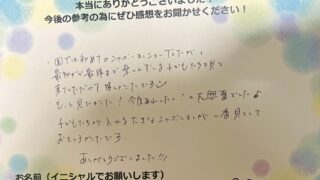 本当にありがとうございました!
今後の参考の為にぜひ感想をお聞かせください!
・園では初めてのシャボン玉ショーでしたが、
最初から最後まで楽しんでいる子どもたちを見て
来ていただけて嬉しかったです
・もっと見たかった!今度お家でしたい!と大興奮でした♪
・子どもたちが入れる大きなシャボン玉が一番見ていて
おもしろかったです。
ありがとうございました!!!
お名前(イニシャルでお願いします)